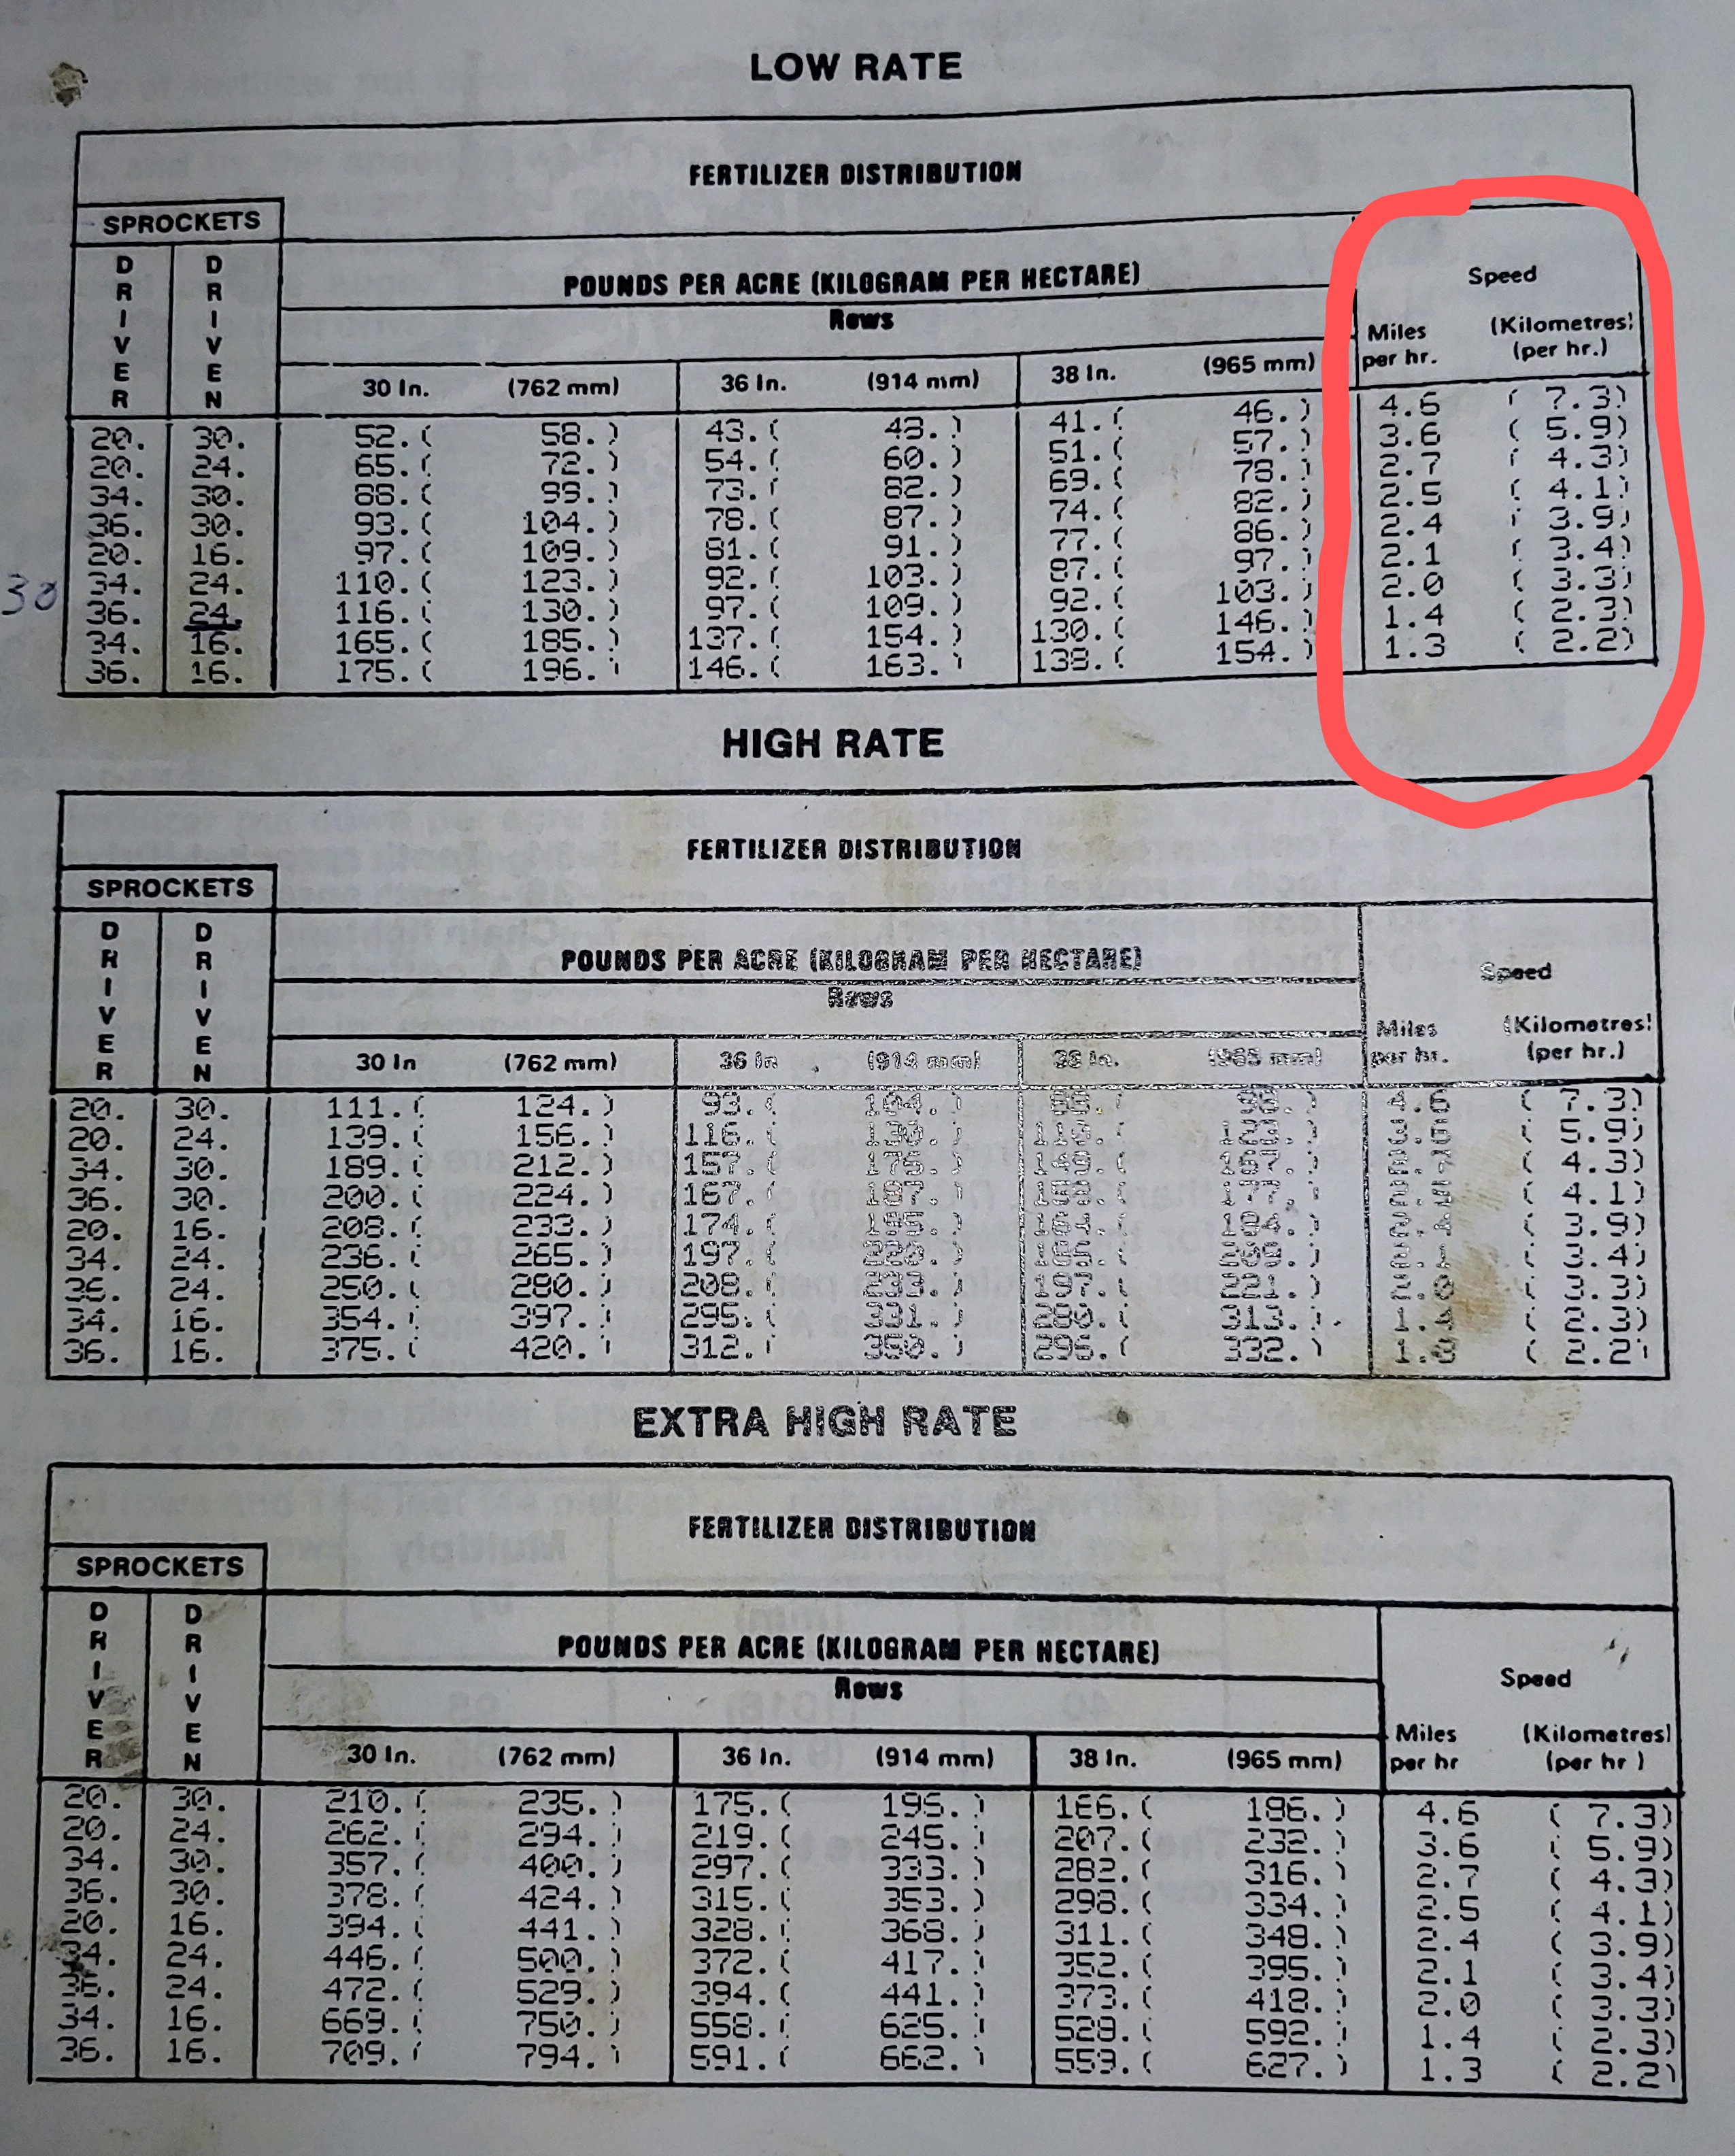 LOW RATE
FERTILIZER DISTRIBUTION
SPROCKETS
DRIVER DRIVEN
POUNDS PER ACRE (KILOGRAM PER HECTARE)
Rows
Speed
Miles per hr. (Kilometres) (per hr.)
30 In. (762 mm) 36 In. (914 mm) 38 In. (965 mm)
20. 30. 52. ( 58. ) 43. ( 48. ) 41. ( 46. ) 4.6 ( 7.3)
20. 24. 65. ( 72. ) 54. ( 60. ) 51. ( 57. ) 3.6 ( 5.9)
34. 30. 88. ( 99. ) 73. ( 82. ) 69. ( 78. ) 2.7 ( 4.3)
36. 30. 93. ( 104. ) 78. ( 87. ) 74. ( 82. ) 2.5 ( 4.1)
20. 16. 97. ( 109. ) 81. ( 91. ) 77. ( 86. ) 2.4 ( 3.9)
30 34. 24. 110. ( 123. ) 92. ( 103. ) 87. ( 97. ) 2.1 ( 3.4)
36. 24. 116. ( 130. ) 97. ( 109. ) 92. ( 103. ) 2.0 ( 3.3)
34. 16. 165. ( 185. ) 137. ( 154. ) 130. ( 146. ) 1.4 ( 2.3)
36. 16. 175. ( 196. ) 146. ( 163. ) 138. ( 154. ) 1.3 ( 2.2)
HIGH RATE
FERTILIZER DISTRIBUTION
SPROCKETS
DRIVER DRIVEN
POUNDS PER ACRE (KILOGRAM PER HECTARE)
Rows
Speed
Miles per hr. (Kilometres) (per hr.)
30 In (762 mm) 36 In (914 mm) 38 In. (965 mm)
20. 30. 111. ( 124. ) 93. ( 104. ) 88. ( 98. ) 4.6 ( 7.3)
20. 24. 139. ( 156. ) 116. ( 130. ) 110. ( 123. ) 3.6 ( 5.9)
34. 30. 189. ( 212. ) 157. ( 176. ) 149. ( 167. ) 2.7 ( 4.3)
36. 30. 200. ( 224. ) 167. ( 187. ) 158. ( 177. ) 2.5 ( 4.1)
20. 16. 208. ( 233. ) 174. ( 195. ) 164. ( 184. ) 2.4 ( 3.9)
34. 24. 236. ( 265. ) 197. ( 220. ) 186. ( 209. ) 2.1 ( 3.4)
36. 24. 250. ( 280. ) 208. ( 233. ) 197. ( 221. ) 2.0 ( 3.3)
34. 16. 354. ( 397. ) 295. ( 331. ) 280. ( 313. ) 1.4 ( 2.3)
36. 16. 375. ( 420. ) 312. ( 350. ) 296. ( 332. ) 1.3 ( 2.2)
EXTRA HIGH RATE
FERTILIZER DISTRIBUTION
SPROCKETS
DRIVER DRIVEN
POUNDS PER ACRE (KILOGRAM PER HECTARE)
Rows
Speed
Miles per hr (Kilometres) (per hr )
30 In. (762 mm) 36 In. (914 mm) 38 In. (965 mm)
20. 30. 210. ( 235. ) 175. ( 196. ) 166. ( 186. ) 4.6 ( 7.3)
20. 24. 262. ( 294. ) 219. ( 245. ) 207. ( 232. ) 3.6 ( 5.9)
34. 30. 357. ( 400. ) 297. ( 333. ) 282. ( 316. ) 2.7 ( 4.3)
36. 30. 378. ( 424. ) 315. ( 353. ) 298. ( 334. ) 2.5 ( 4.1)
20. 16. 394. ( 441. ) 328. ( 368. ) 311. ( 348. ) 2.4 ( 3.9)
34. 24. 446. ( 500. ) 372. ( 417. ) 352. ( 395. ) 2.1 ( 3.4)
36. 24. 472. ( 529. ) 394. ( 441. ) 373. ( 418. ) 2.0 ( 3.3)
34. 16. 669. ( 750. ) 558. ( 625. ) 528. ( 592. ) 1.4 ( 2.3)
36. 16. 709. ( 794. ) 591. ( 662. ) 559. ( 627. ) 1.3 ( 2.2)